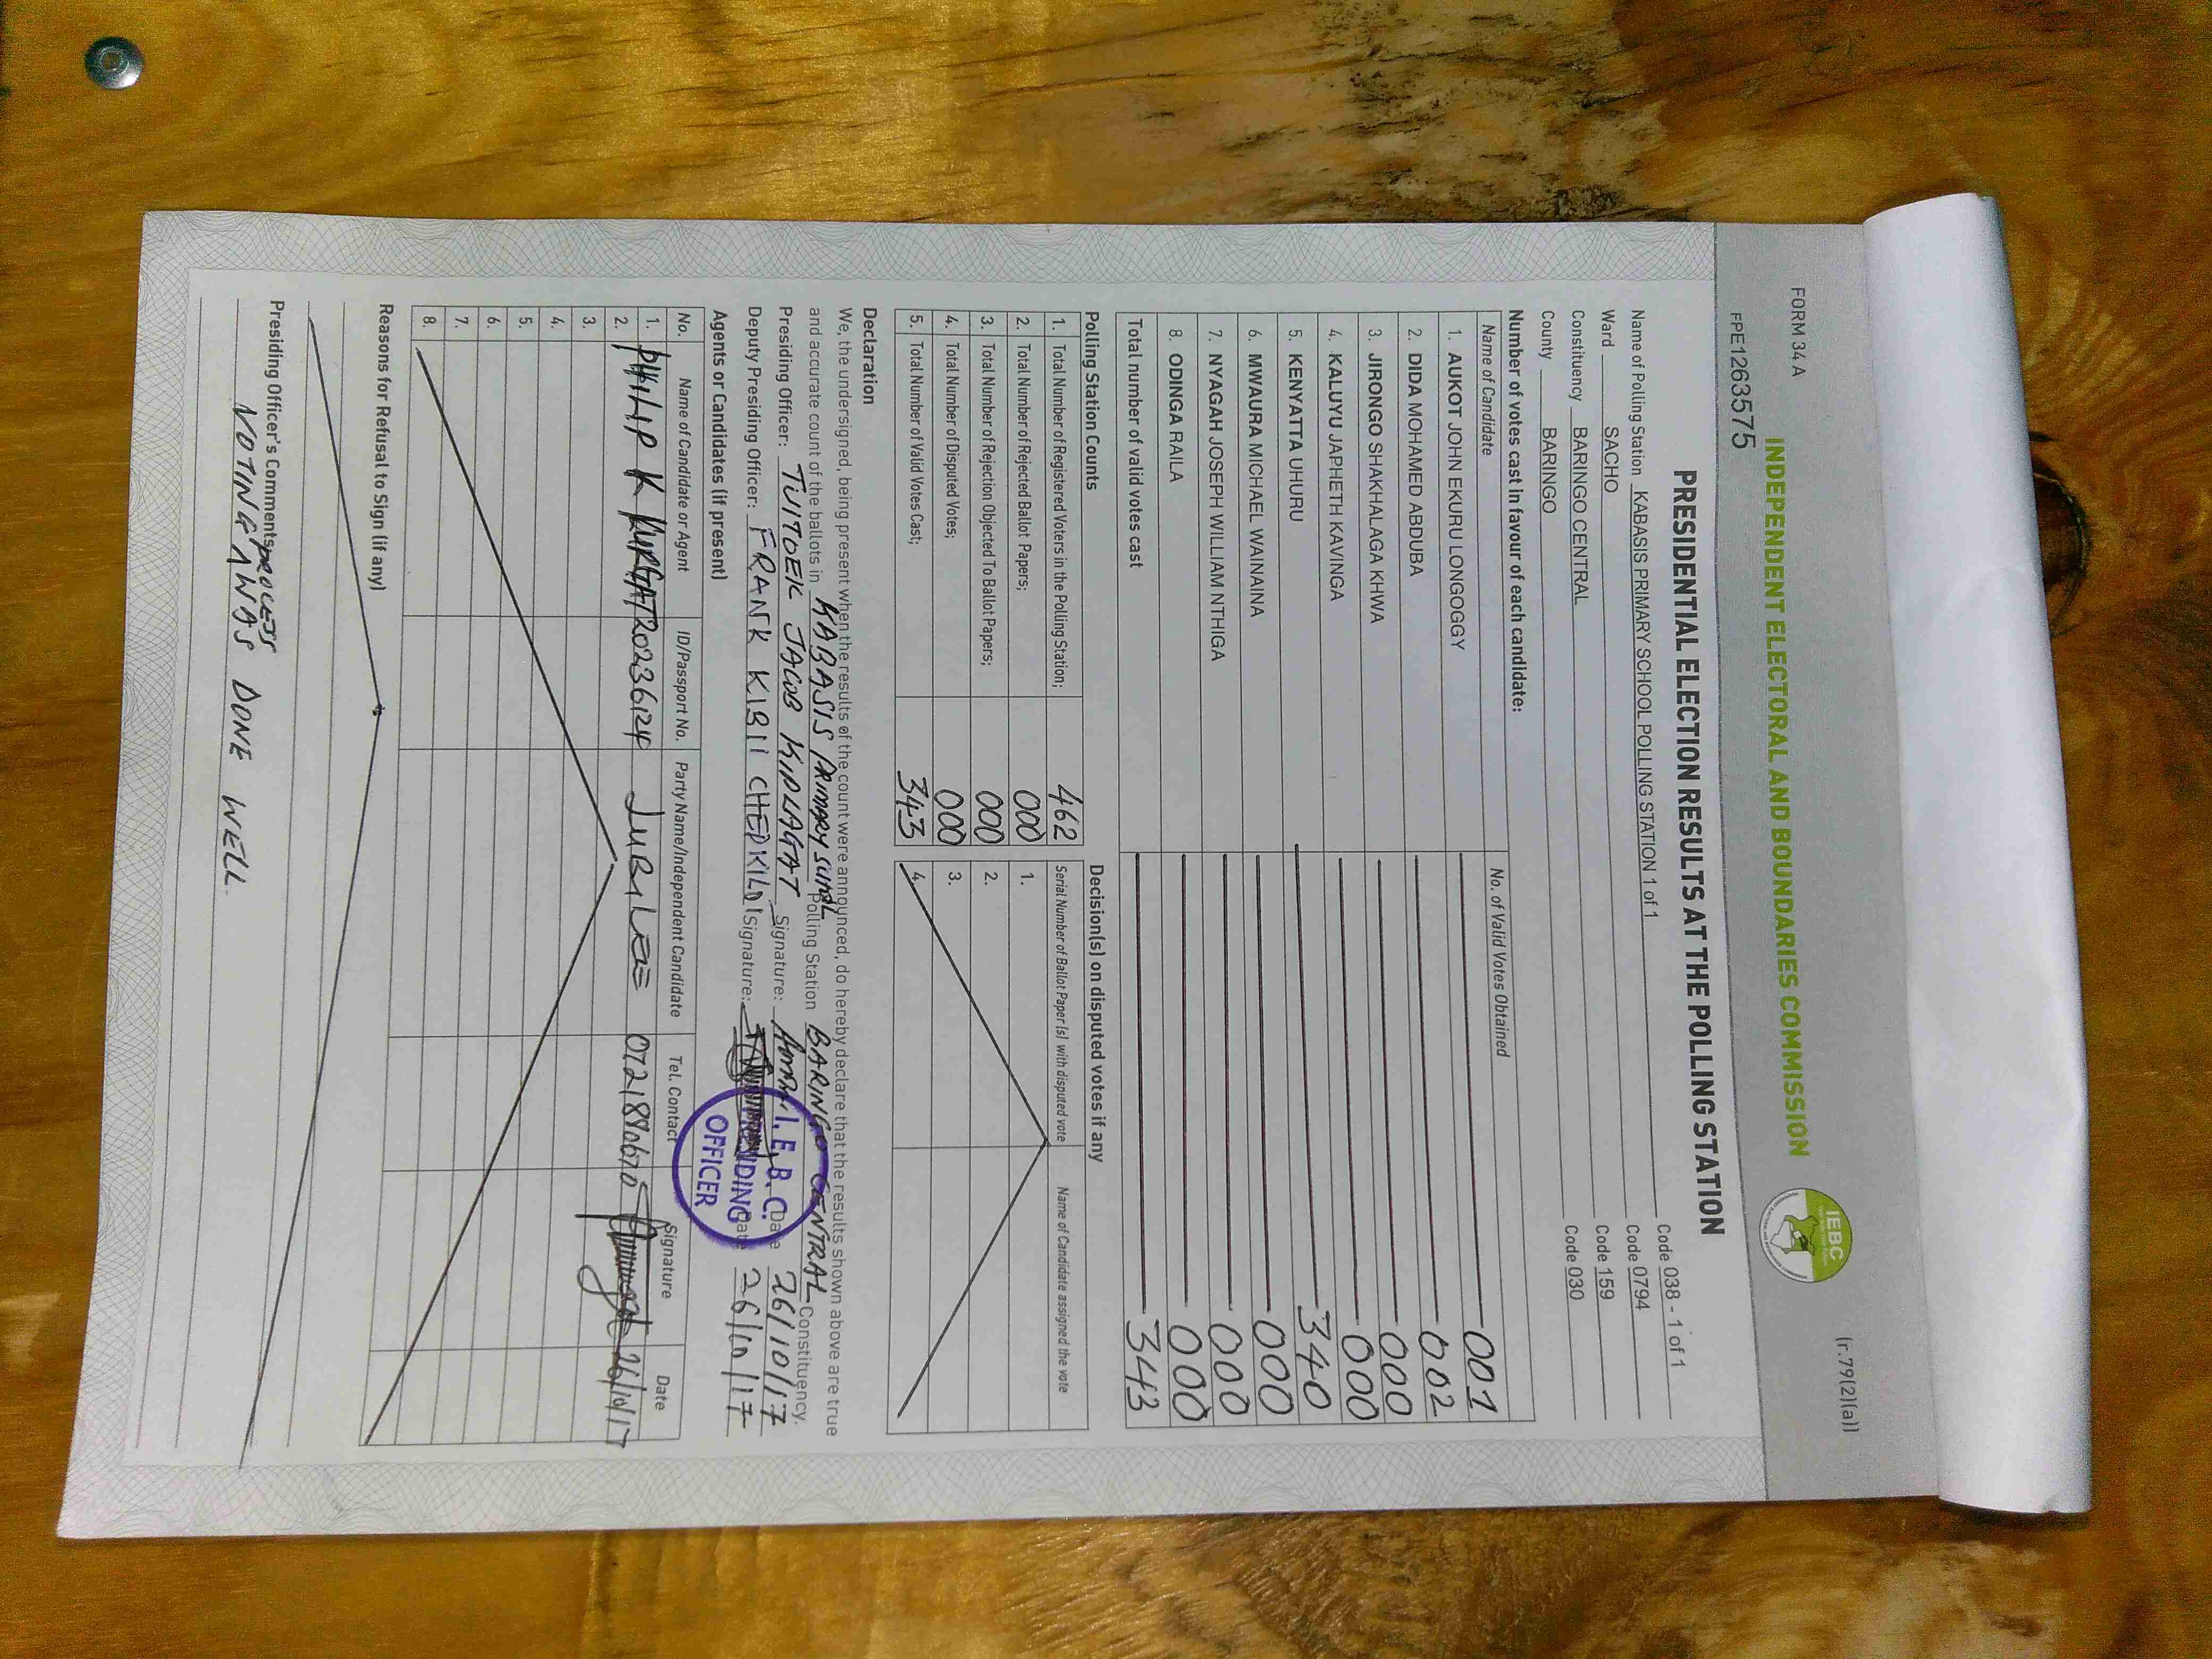 FORM 34 A
(r.79(2)(a))
INDEPENDENT ELECTORAL AND BOUNDARIES COMMISSION
IEBC
FPE1263575
PRESIDENTIAL ELECTION RESULTS AT THE POLLING STATION
Name of Polling Station KABASIS PRIMARY SCHOOL POLLING STATION 1 of 1 Code 038 - 1 of 1
Ward SACHO Code 0794
Constituency BARINGO CENTRAL Code 159
County BARINGO Code 030
Number of votes cast in favour of each candidate:
Name of Candidate No. of Valid Votes Obtained
1. AUKOT JOHN EKURU LONGOGGY 001
2. DIDA MOHAMED ABDUBA 002
3. JIRONGO SHAKHALAGA KHWA 000
4. KALUYU JAPHETH KAVINGA 000
5. KENYATTA UHURU 340
6. MWAURA MICHAEL WAINAINA 000
7. NYAGAH JOSEPH WILLIAM NTHIGA 000
8. ODINGA RAILA 000
Total number of valid votes cast 343
Polling Station Counts Decision(s) on disputed votes if any
1. Total Number of Registered Voters in the Polling Station; 462 Serial Number of Ballot Paper (s) with disputed vote Name of Candidate assigned the vote
2. Total Number of Rejected Ballot Papers; 000 1.
3. Total Number of Rejection Objected To Ballot Papers; 000 2.
4. Total Number of Disputed Votes; 000 3.
5. Total Number of Valid Votes Cast; 343 4.
Declaration
We, the undersigned, being present when the results of the count were announced, do hereby declare that the results shown above are true
and accurate count of the ballots in KABASIS PRIMARY SCHOOL Polling Station BARINGO CENTRAL Constituency.
Presiding Officer: TUITOEK JACOB KIPLAGAT Signature: Date 26/10/17
Deputy Presiding Officer: FRANK KIBII CHEPKILOI Signature: Date 26/10/17
I.E.B.C.
PRESIDING
OFFICER
Agents or Candidates (if present)
No. Name of Candidate or Agent ID/Passport No. Party Name/Independent Candidate Tel. Contact Signature Date
1. PHILIP K KURGAT 20236124 JUBILEE 0721880670 26/10/17
2.
3.
4.
5.
6.
7.
8.
Reasons for Refusal to Sign (if any)
Presiding Officer's Comments
VOTING PROCESS WAS DONE WELL.